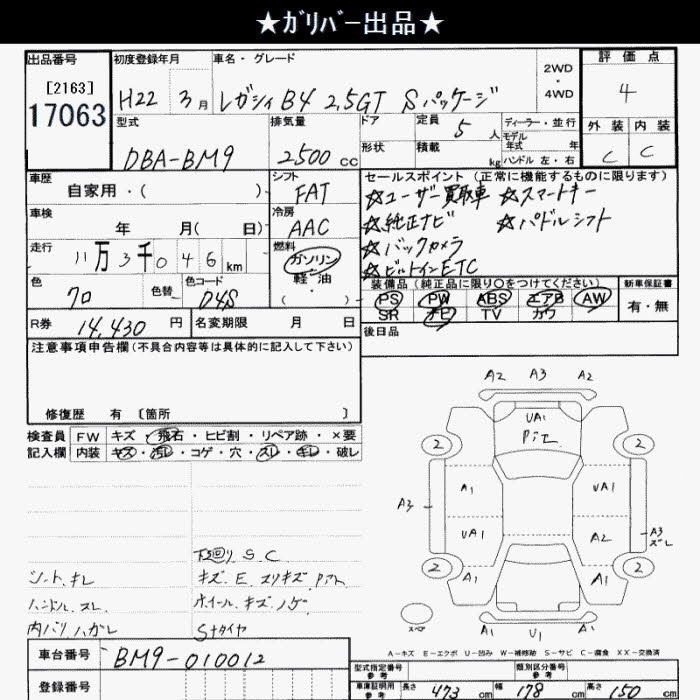 ★ｶﾞﾘﾊﾞｰ出品★
出品番号
[2163]
17063
初度登録年月
H22 3月
車名・グレード
レガシィB4 2.5GT Sパッケージ
2WD
・
4WD
評価点
4
外装 内装
C C
型式
DBA-BM9
排気量
2500cc
ドア
形状
定員 5人
積載 kg
ディーラー・並行
モデル
年式 年
ハンドル 左・右
車歴
自家用・( )
シフト
FAT
車検
年 月( 日)
冷房
AAC
走行
11万3千046km
燃料
ガソリン
軽・油
・( )
色
クロ
色替
色コード
D4S
R券 14,430円
名変期限 月 日
セールスポイント(正常に機能するものに限ります)
☆ユーザー買取車 ☆スマートキー
☆純正ナビ ☆パドルシフト
☆バックカメラ
☆ビルトインETC
装備品(純正品に限り○をつけてください)
PS PW ABS エアB AW
SR ナビ TV カワ
新車保証書
有・無
後日品
注意事項申告欄(不具合内容等は具体的に記入して下さい)
修復歴 有 〔箇所 〕
検査員
記入欄
FW キズ・飛石・ヒビ割・リペア跡・×要
内装 キズ・汚レ・コゲ・穴・スレ・キレ・破レ
下回り S.C
シート.キレ
キズ.E.スリキズ.Pアト
ハンドル.スレ
ホイール.キズ.ハゲ
内バリハガレ
Sトタイヤ
A2 A3 A2
UA1
2 2
A1 UA1
A3
UA1 A2
A3
ズレ
2 2
A1 A1
スペア
A1 U1 A1
A-キズ E-エクボ U-凹み W-補修跡 S-サビ C-腐食 XX-交換済
車台番号 BM9-010012
登録番号
型式指定番号
参考
類別区分番号
参考
車庫証明用
参考
長さ 473cm 幅 178cm 高さ 150cm